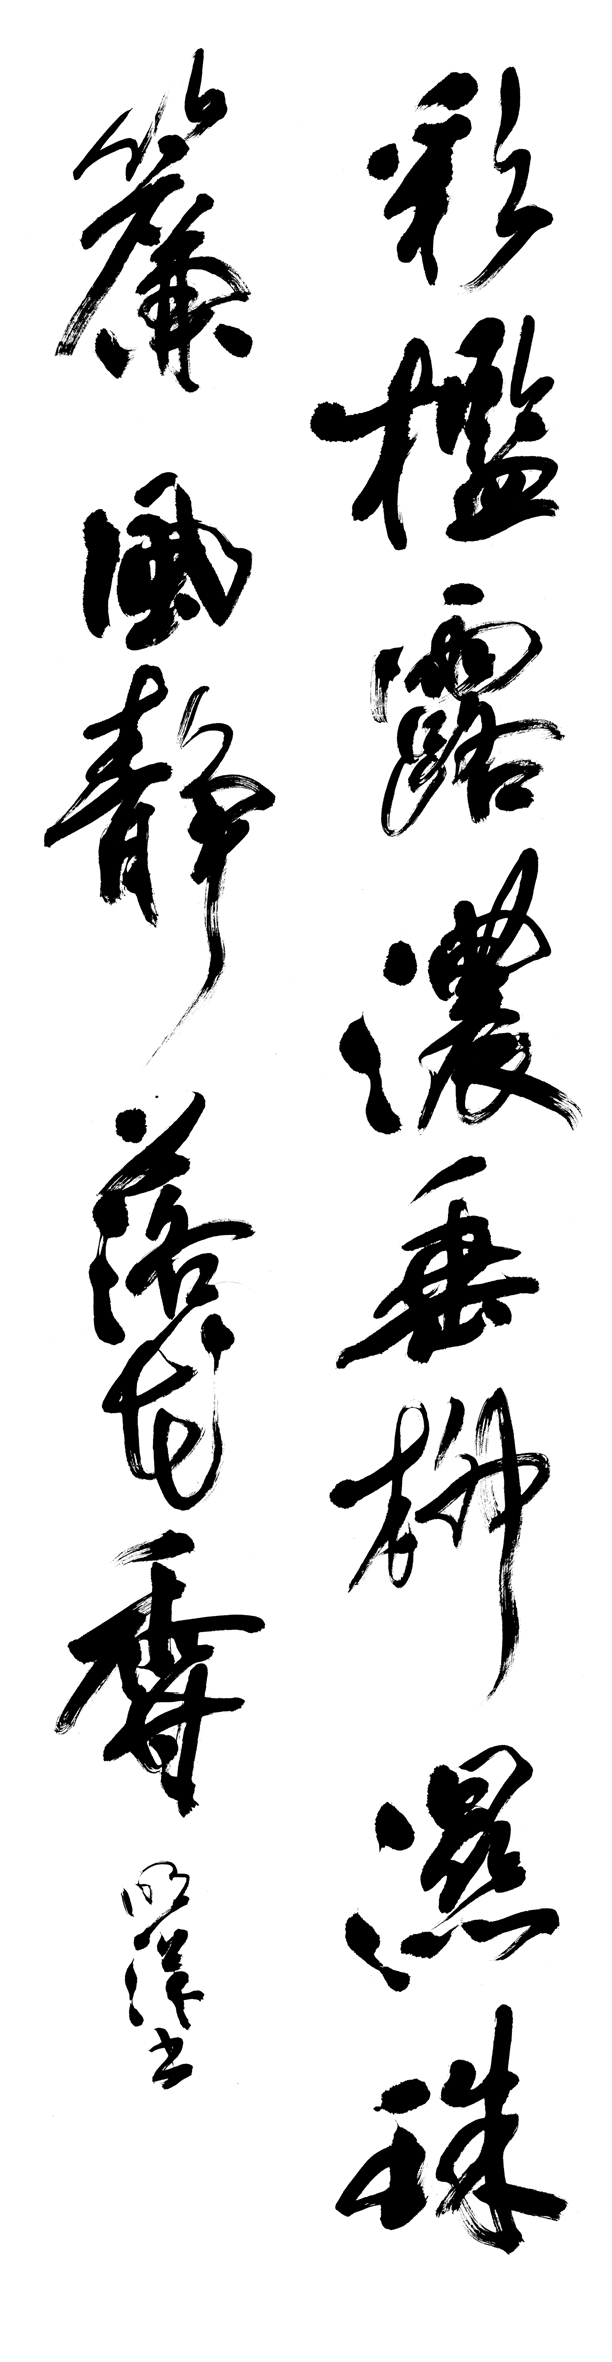 彩檻露濃垂柳濕珠
簾風静落花香
書